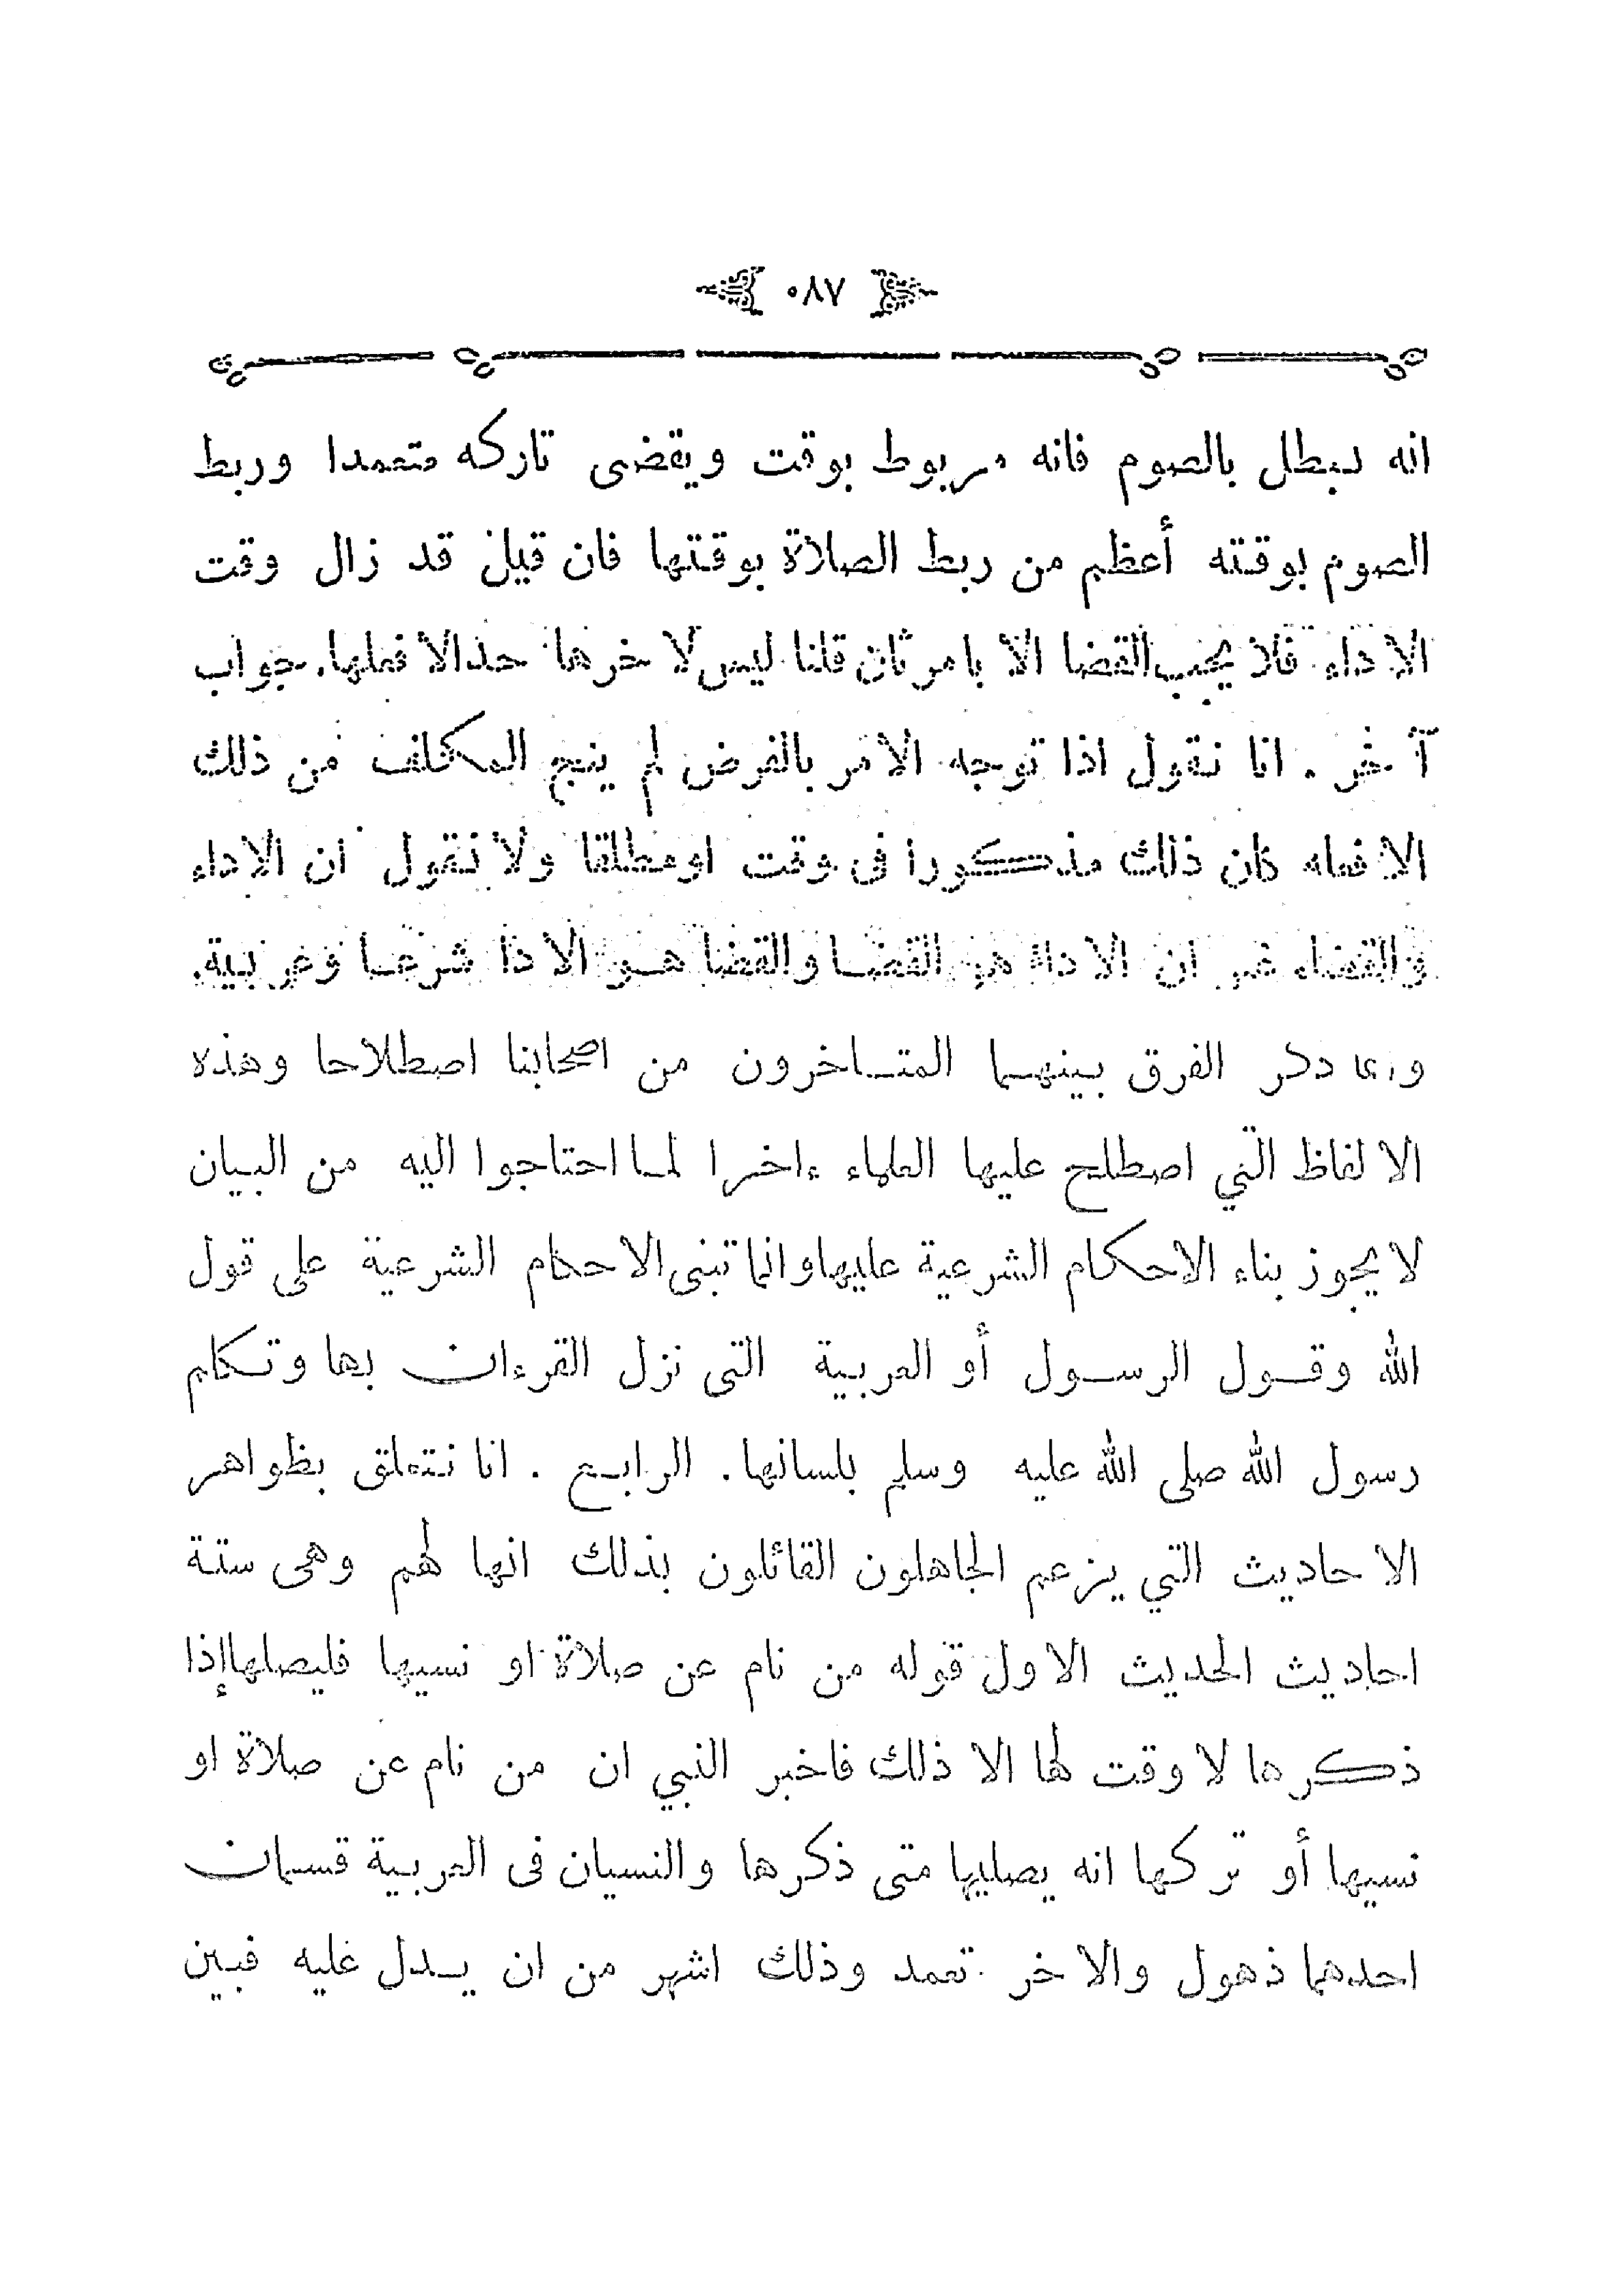 ٠٨٧
انه ليبطل بالصوم فانه مربوط بوقت ويقضى تاركه متعمدا وربط
الصوم بوقته أعظم من ربط الصلاة بوقتها فان قيل قد زال وقت
الاداء فلا يجب القضا الا بامر ثان قلنا ليس لاخرها حد الا فعلها. جواب
آخر . انا نقول اذا توجه الامر بالفرض لم ينج المكلف من ذلك
الا فعله كان ذلك مذكورا فى وقت او مطلقا ولا نقول ان الاداء
والقضاء غير ان الاداء هو القضا والقضا هو الادا شرعا وعربية.
وانما ذكر الفرق بينهما المتاخرون من اصحابنا اصطلاحا وهذه
الالفاظ التي اصطلح عليها العلماء ءاخرا لما احتاجوا اليه من البيان
لا يجوز بناء الاحكام الشرعية عليها وانما تبنى الاحكام الشرعية على قول
الله وقول الرسول أو العربية التى نزل القرءان بها وتكلم
رسول الله صلى الله عليه وسلم بلسانها. الرابع . انا نتعلق بظواهر
الاحاديث التي يزعم الجاهلون القائلون بذلك انها لهم وهى ستة
احاديث الحديث الاول قوله من نام عن صلاة او نسيها فليصلها إذا
ذكرها لا وقت لها الا ذلك فاخبر النبي ان من نام عن صلاة او
نسيها أو تركها انه يصليها متى ذكرها والنسيان فى العربية قسمان
احدهما ذهول والاخر تعمد وذلك اشهر من ان يدل عليه فبين